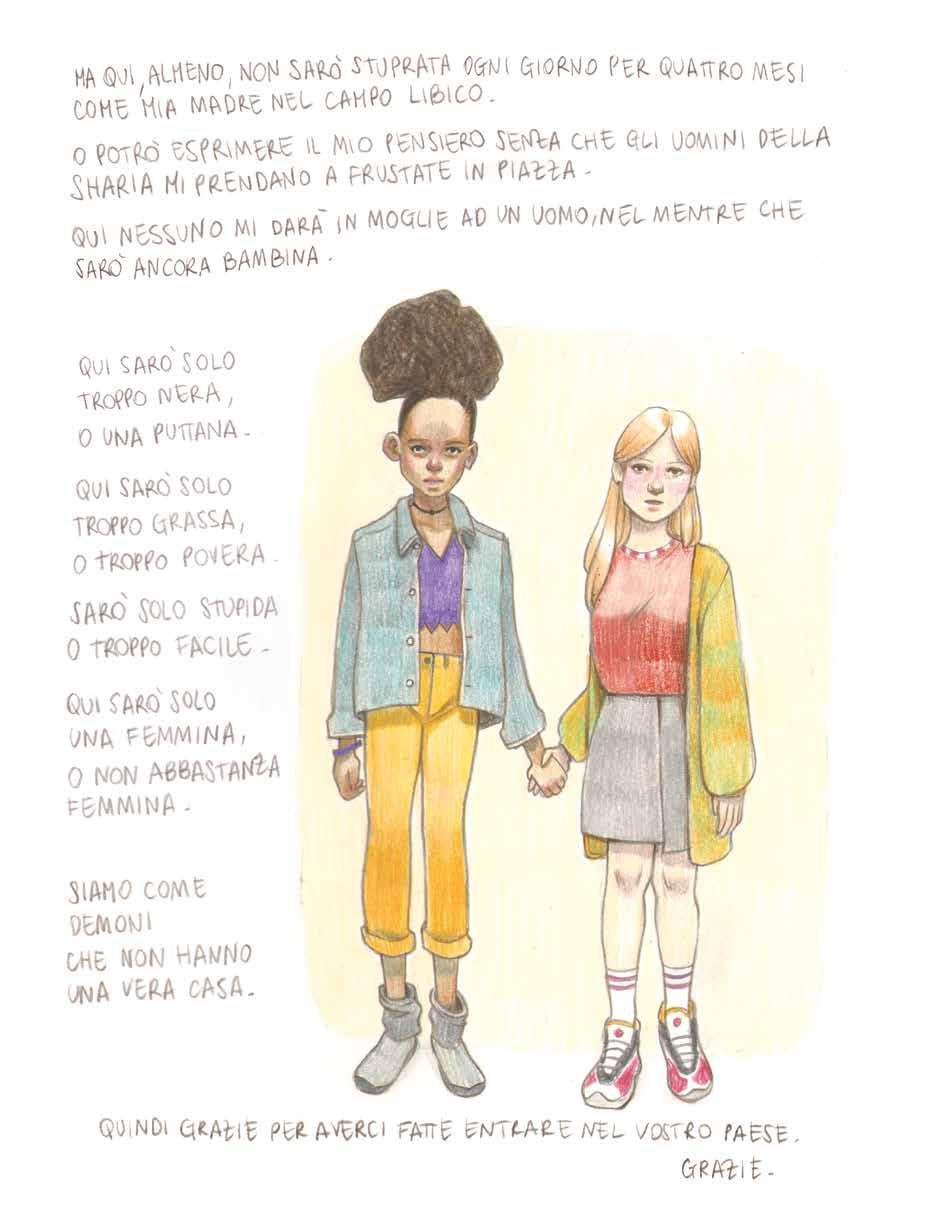 MA QUI, ALMENO, NON SARÒ STUPRATA OGNI GIORNO PER QUATTRO MESI
COME MIA MADRE NEL CAMPO LIBICO.
O POTRÒ ESPRIMERE IL MIO PENSIERO SENZA CHE GLI UOMINI DELLA
SHARIA MI PRENDANO A FRUSTATE IN PIAZZA.
QUI NESSUNO MI DARÀ IN MOGLIE AD UN UOMO, NEL MENTRE CHE
SARÒ ANCORA BAMBINA.
QUI SARÒ SOLO
TROPPO NERA,
O UNA PUTTANA.
QUI SARÒ SOLO
TROPPO GRASSA,
O TROPPO POVERA.
SARÒ SOLO STUPIDA
O TROPPO FACILE.
QUI SARÒ SOLO
UNA FEMMINA,
O NON ABBASTANZA
FEMMINA.
SIAMO COME
DEMONI
CHE NON HANNO
UNA VERA CASA.
QUINDI GRAZIE PER AVERCI FATTE ENTRARE NEL VOSTRO PAESE.
GRAZIE.